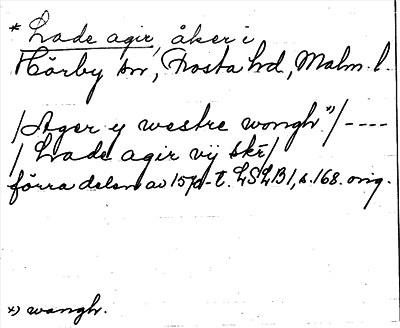 * Lade agir, åker i
Hörby sn, Frosta hd, Malm. l.
/Ager y westre wongh *)/ ----
/ Lade agir vij skr/
förra delen av 15/a-t. LSLB1, s. 168. orig.
*) wangh.